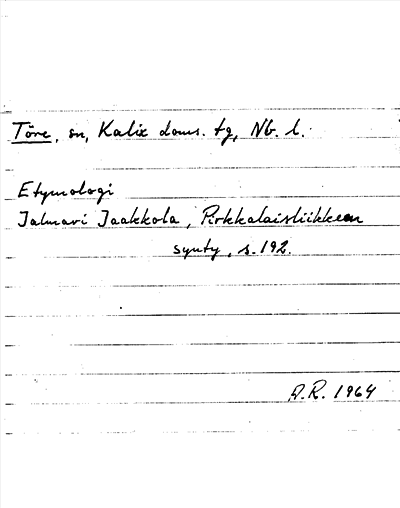 Töre, sn, Kalix doms. tg, Nb. l.
Etymologi
Jalmari Jaakkola, Pirkkalaisliikkeen
synty, s. 192.
A.R. 1964